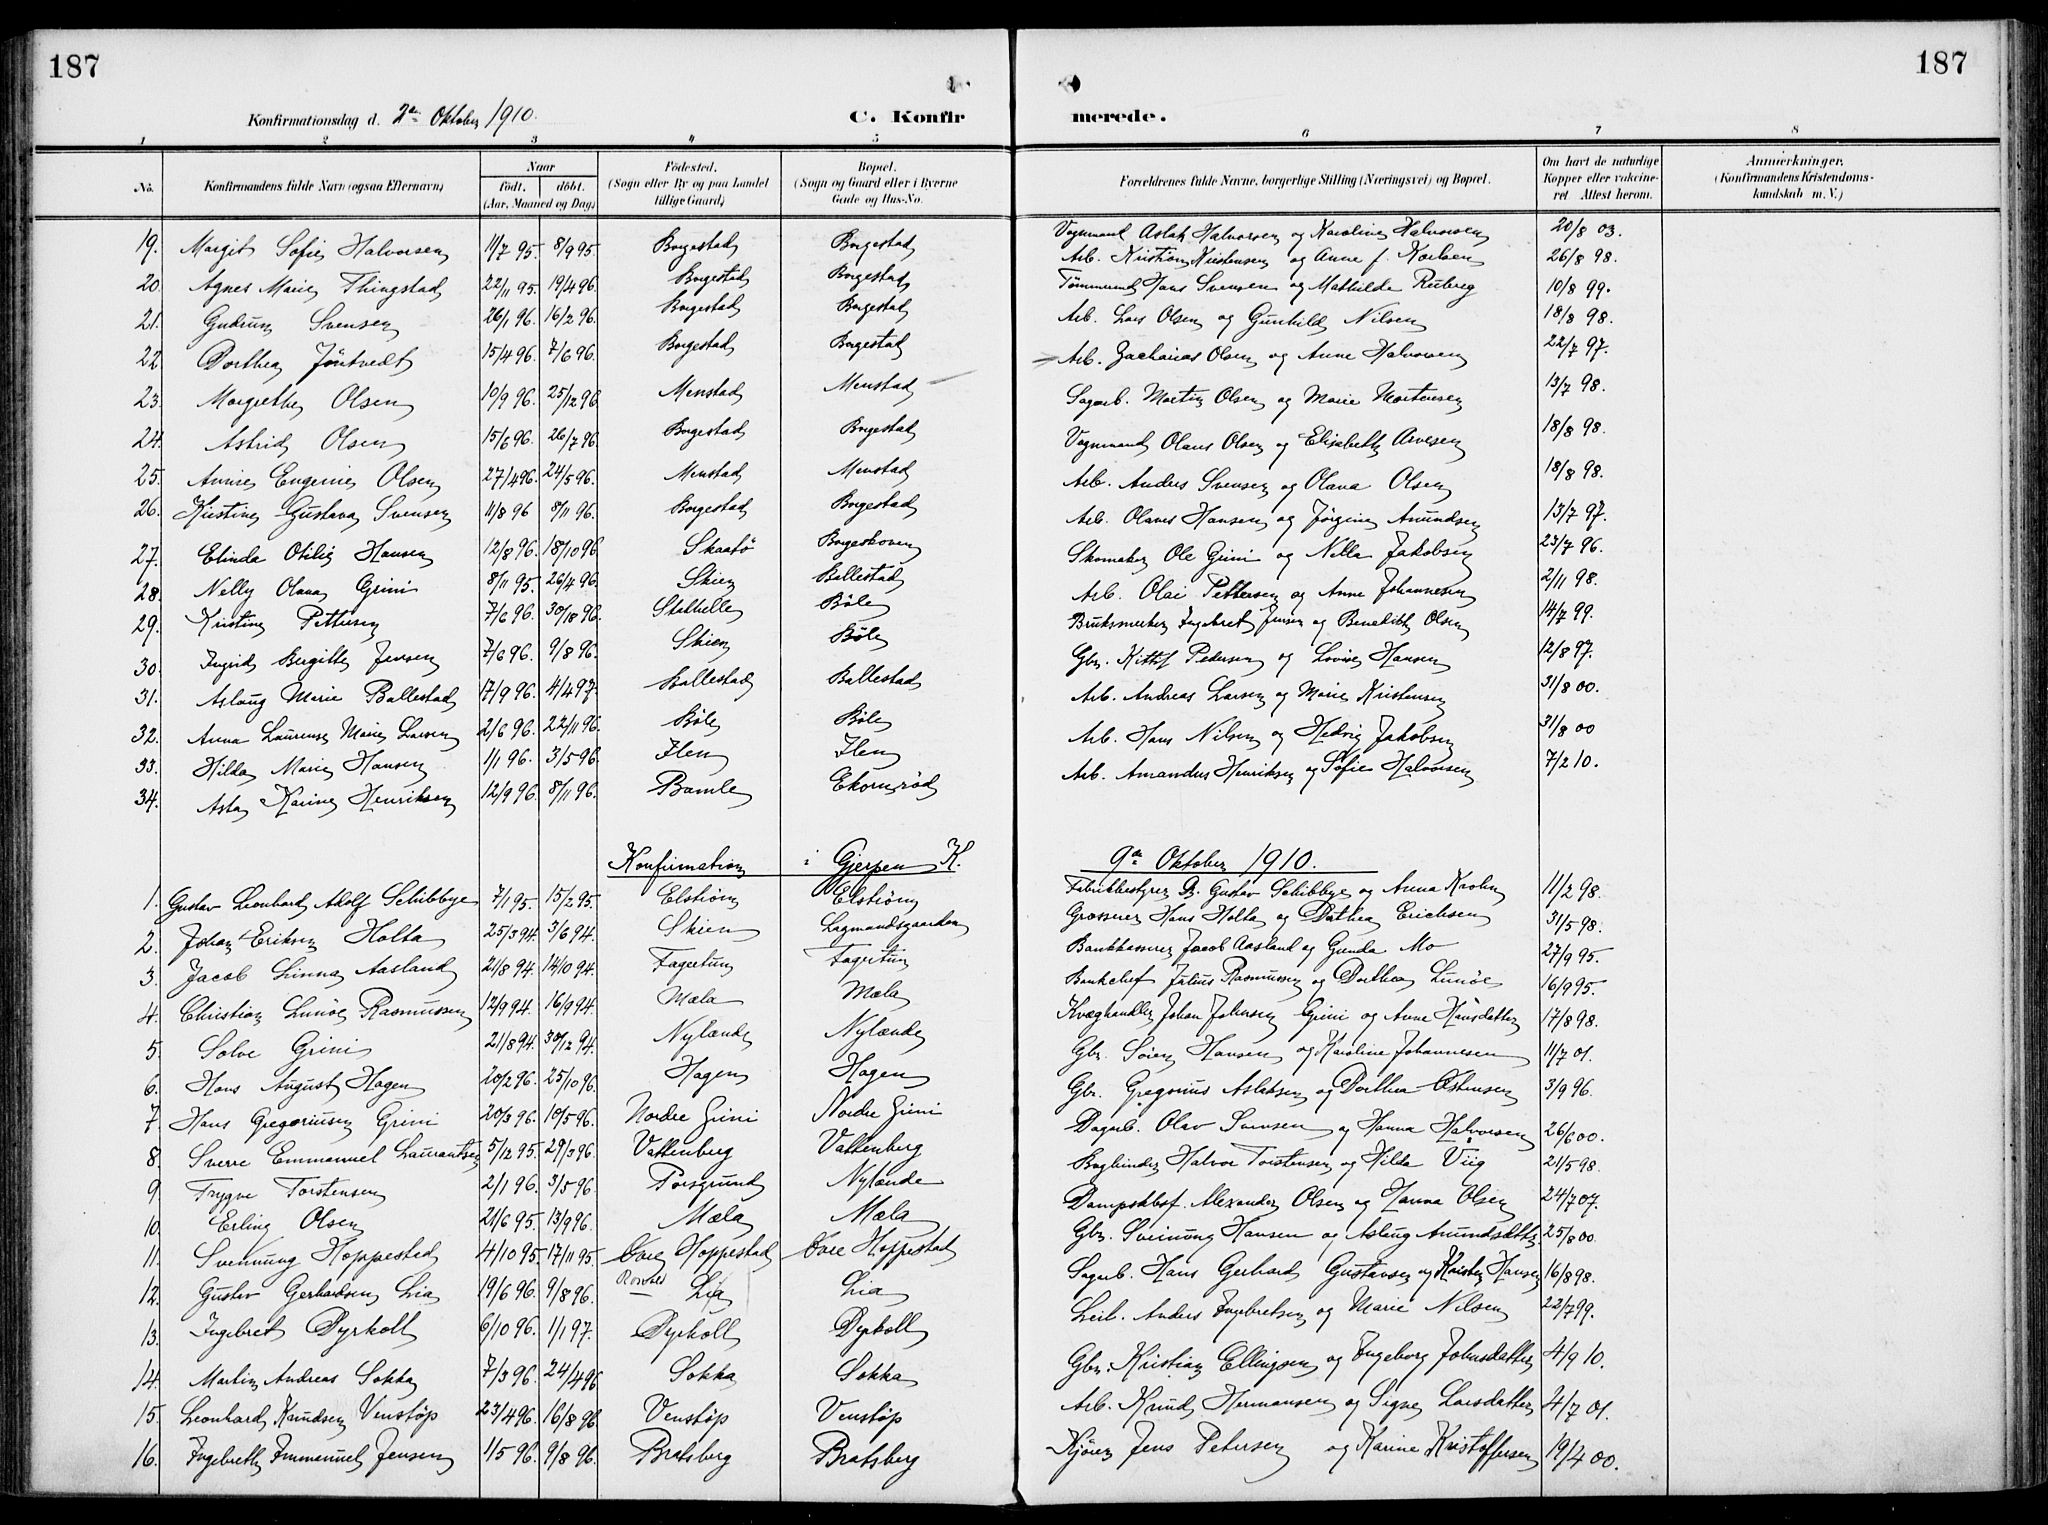 187
187
Konfirmationsdag d. 2den Oktober 1910.
C. Konfir
merede.
1 2 3 4 5 6 7 8
No. Konfirmandens fulde Navn (ogsaa Efternavn) Naar födt. döbt. (Aar, Maaned og Dag) Födested. (Sogn eller By og paa Landet tillige Gaard) Bopæl. (Sogn og Gaard eller i Byerne Gade og Hus-No. Forældrenes fulde Navne, borgerlige Stilling (Næringsvei) og Bopæl. Om havt de naturlige Kopper eller vakcineret Attest herom. Anmærkninger. (Konfirmandens Kristendomskundskab m. V.)
19. Margit Sofie Halvorsen 11/7 95. 8/9 95. Borgestad Borgestad Vognmand Aslak Halvorsen og Karoline Halvorsen 20/8 03.
20. Agnes Marie Thingstad 22/11 95. 19/4 96. Borgestad Borgestad Arb. Kristian Kristensen og Anne f. Karlsen 26/8 98.
21. Gudrun Svensen 26/1 96. 16/2 96. Borgestad Borgestad Tømmermd Hans Svensen og Mathilde Ruberg 10/8 99.
22. Dorthea Jöntvedt 15/4 96. 7/6 96. Borgestad Borgestad Arb. Lars Olsen og Gunhild Nilsen 18/8 98.
23. Margrethe Olsen 10/9 96. 25/12 96. Menstad Menstad Arb. Zacharias Olsen og Anne Halvorsen 22/7 97.
24. Astrid Olsen 15/6 96. 26/7 96. Borgestad Borgestad Sagarb. Martin Olsen og Marie Mortensen 13/7 98.
25. Annie Eugenie Olsen 27/4 96. 24/5 96. Menstad Menstad Vognmand Olaus Olsen og Elisabeth Arvesen 18/8 98.
26. Kristine Gustava Svensen 11/8 96 8/11 96. Borgestad Borgestad Arb. Anders Svensen og Olava Olsen 18/8 98.
27. Elinda Otilie Hansen 12/8 96. 18/10 96. Skaatö Borgeskoven Arb. Olaves Hansen og Jørgine Amundsen 13/7 97.
28. Nelly Olava Grini 8/11 95. 26/4 96. Skien Ballestad Skomaker Ole Grini og Nilla Jakobsen 23/7 96.
29. Kristine Pettersen 7/6 96. 30/18 96. Stathelle Böle Arb. Olai Pettersen og Anne Johannesen 2/11 98.
30. Ingrid Bergitte Jensen 7/6 96. 9/8 96. Skien Böle Bruksmerker Ingebret Jensen og Benedikte Olsen 14/7 99.
31. Aslaug Marie Ballestad 17/9 96. 4/4 97. Ballestad Ballestad Gbr. Kittil Pedersen og Lovise Hansen 12/8 97.
32. Anna Laurense Marie Larsen 2/6 96. 22/11 96. Böle Böle Arb. Andreas Larsen og Marie Kristensen 31/8 00.
33. Hilda Marie Hansen 1/1 96. 3/5 96. Flen Flen Arb. Hans Nilsen og Hedvig Jakobsen 31/8 00
34. Asta Karine Henriksen 12/9 96. 8/11 96. Bamle Ekornrød Arb. Amandus Henriksen og Sofie Halvorsen 7/2 10.
Konfirmation i Gjerpen K. 9de Oktober 1910.
1. Gustav Leonhard Adolf Schibbye 7/1 95. 15/2 95. Elstrøm Elstrøm Fabrikbestyrer Gustav Schibbye og Anna Krohn 11/2 98.
2. Johan Eriksen Holta 25/3 94. 3/6 94. Skien Lagmandsgaarden Grosserer Hans Holta og Dorthea Erichsen 31/5 98.
3. Jacob Linna Aasland 21/8 94. 14/10 94. Fagertun Fagertun Bankkasserer Jacob Aasland og Gunda Mo 27/9 95.
4. Christian Lunöe Rasmussen 12/9 94. 16/9 94. Mæla Mæla Bankchef Julius Rasmussen og Dorthea Lunöe 16/9 95.
5. Solve Grini 21/8 94. 30/12 94. Nylænde Nylænde Kvæghandler Johan Johnsen Grini og Anne Hansdatter 17/8 98.
6. Hans August Hagen 20/2 96. 25/10 96. Hagen Hagen Gbr. Sören Hansen og Karoline Johannesen 11/7 01.
7. Hans Gregoriusen Grini 20/3 96. 10/5 96. Nordre Grini Nordre Grini Gbr. Gregorius Aslaksen og Dorthea Østensen 3/9 96.
8. Sverre Emmanuel Laurantsen 5/12 95. 29/3 96. Vattenberg Vattenberg Dagarb. Olav Svensen og Hanna Halvorsen 26/6 00.
9. Trygve Torstensen 2/1 96. 3/5 96. Porsgrund Nylænde Bogbinder Halvor Torstensen og Hilda Viig 21/5 98.
10. Erling Olsen 21/6 95. 13/9 96. Mæla Mæla Dampskbsf. Alexander Olsen og Hanna Olsen 24/7 07.
11. Svennung Hoppestad 4/10 95. 17/11 95. Övre Hoppestad Övre Hoppestad Gbr. Sveinung Hansen og Aslaug Amundsdatter 25/8 00.
12. Gustav Gerhardsen Lia 19/6 96. 9/8 96. Lia Lia Sagarb. Hans Gerhard Gustavsen og Karsten Hansen 16/8 98.
13. Ingebret Dyrkoll 6/10 96. 1/1 97. Dyrkoll Dyrkoll Leil. Anders Ingebretsen og Marie Nilsen 22/7 99.
14. Martin Andreas Sokka 7/3 96. 24/4 96 Sokka Sokka Gbr. Kristian Ellingsen og Ingeborg Johnsdatter 4/9 10.
15. Leonhard Knudsen Venstöp 23/4 96. 16/8 96. Venstöp Venstöp Arb. Knud Hermansen og Signe Larsdatter 4/7 01.
16. Ingebreth Immanuel Jensen 1/5 96. 9/8 96. Bratsberg Bratsberg Kjörer Jens Petersen og Karine Kristoffersen 19/4 00.